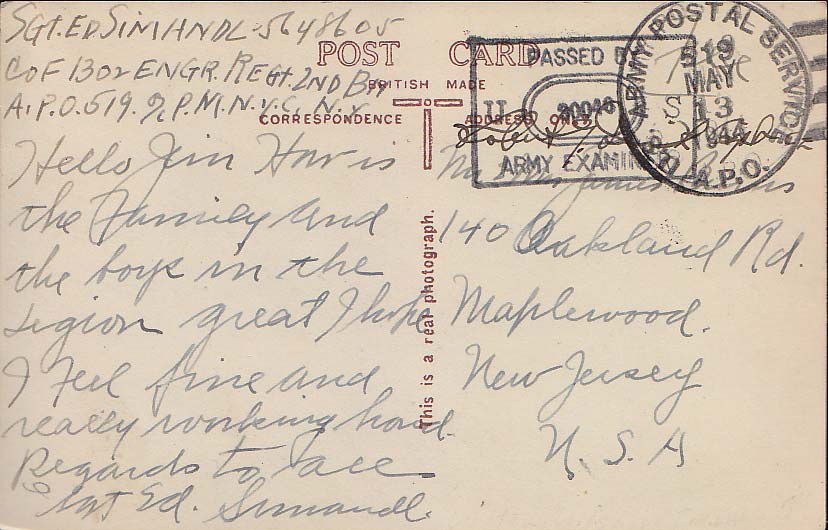 SGT. ED SIMANDL-5648605
CO F 1302 ENGR. REGT. 2ND Bn
A.P.O. 519. % P.M. N.Y.C. N.Y.
POST CARD
BRITISH MADE
CORRESPONDENCE
ADDRESS ONLY
Hello Jim How is
the Family and
the boys in the
Legion great I hope
I Feel fine and
really working hard.
Regards to all
Sgt Ed. Simandl.
This is a real photograph.
PASSED B
20046
ARMY EXAMIN
ARMY POSTAL SERVICE
519
MAY
13
1944
A.P.O.
Free
James
140 Oakland Rd.
Maplewood.
New Jersey
U. S. A